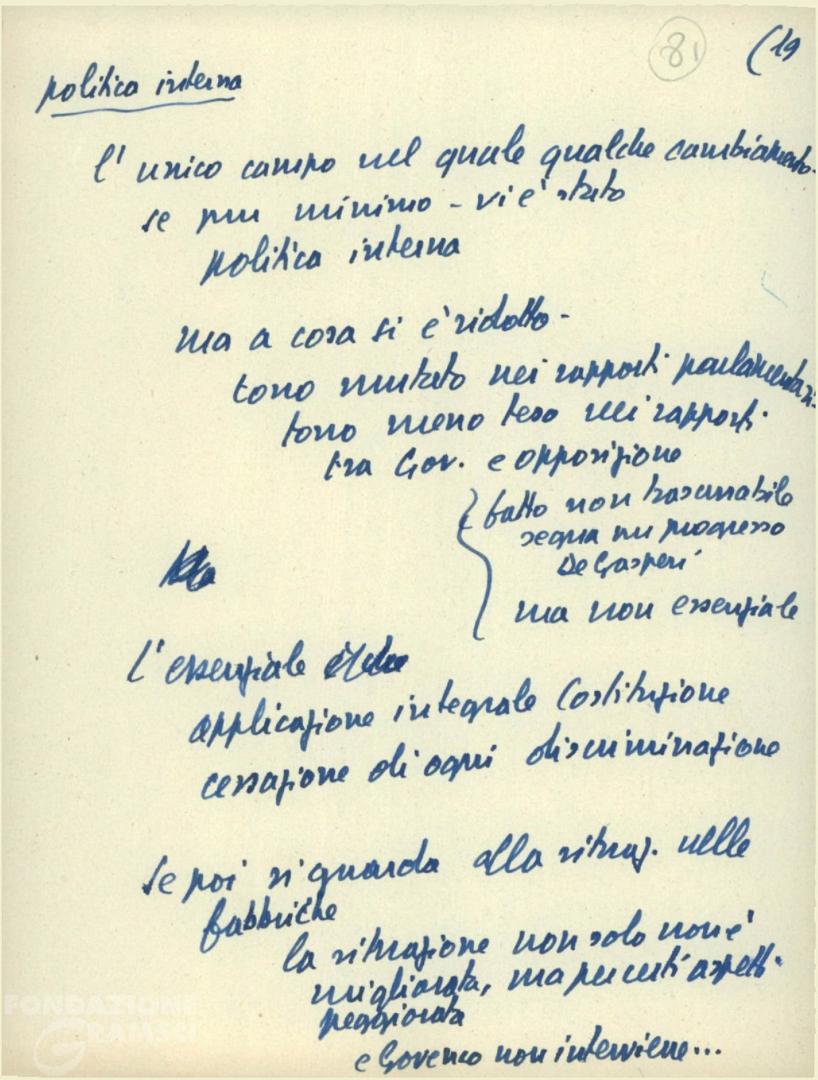 81 (19
politica interna
l'unico campo nel quale qualche cambiamento -
se pur minimo - vi è stato
politica interna
ma a cosa si è ridotto -
tono mutato nei rapporti parlamentari -
tono meno teso nei rapporti
tra Gov. e opposizione
fatto non trascurabile
segna un progresso
De Gasperi
ma non essenziale
L'essenziale
applicazione integrale Costituzione
cessazione di ogni discriminazione
Se poi si guarda alla situaz. nelle
fabbriche
la situazione non solo non è
migliorata, ma per certi aspetti
peggiorata
e Governo non interviene...
FONDAZIONE
GRAMSCI